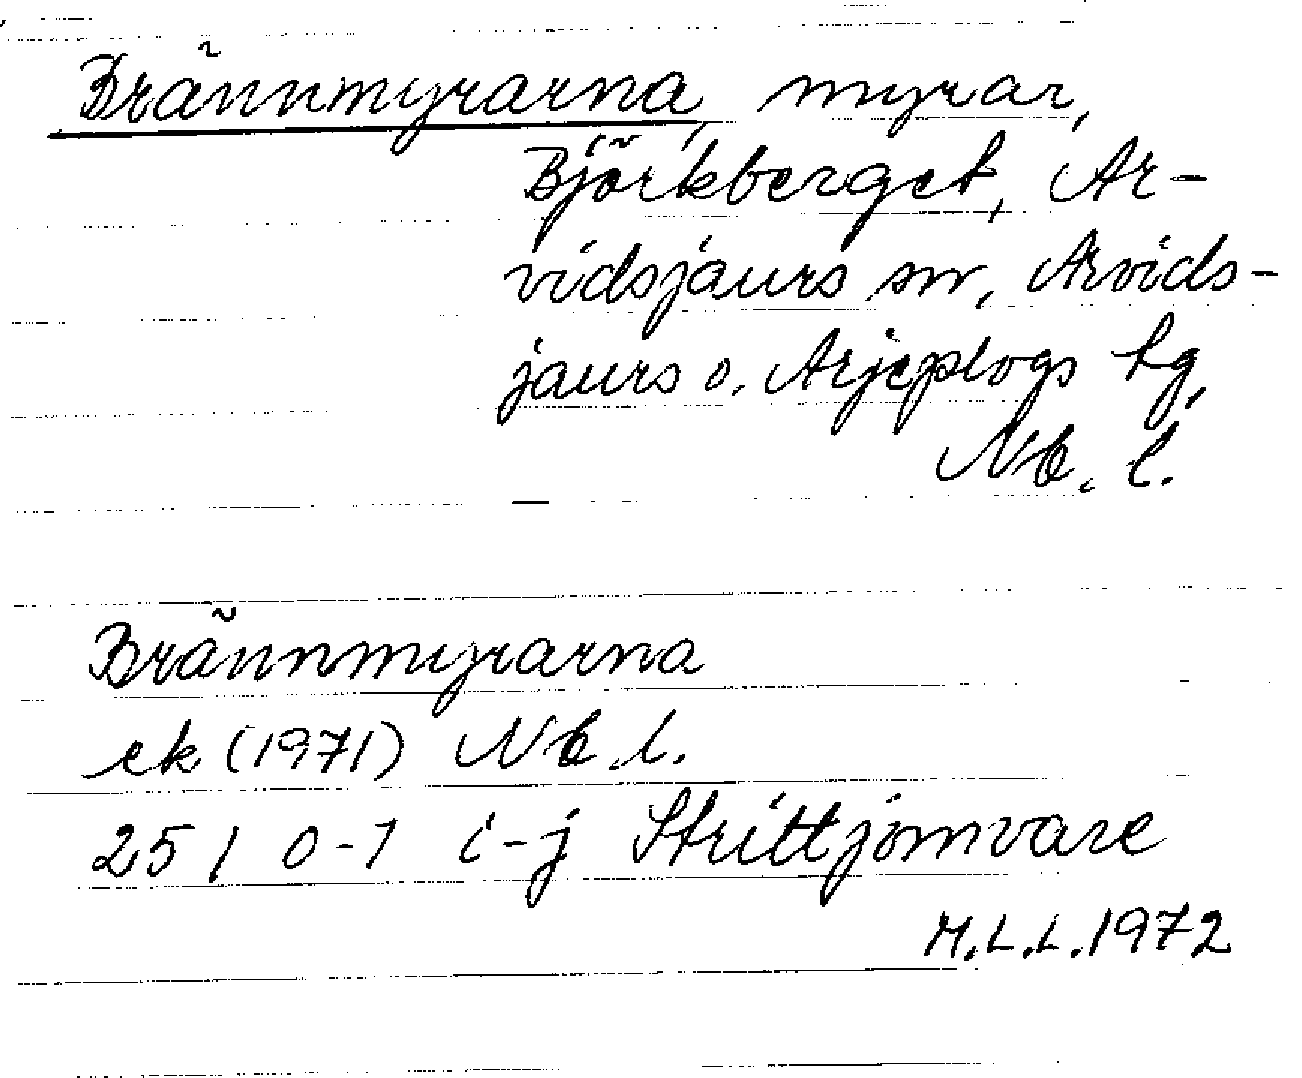 Brännmyrarna, myrar,
Björkberget, Ar-
vidsjaurs sn, Arvids-
jaurs o. Arjeplogs tg,
Nb. l.
Brännmyrarna
ek (1971) Nb l.
25 I 0-1 i-j Strittjomvare
M.L.L. 1972